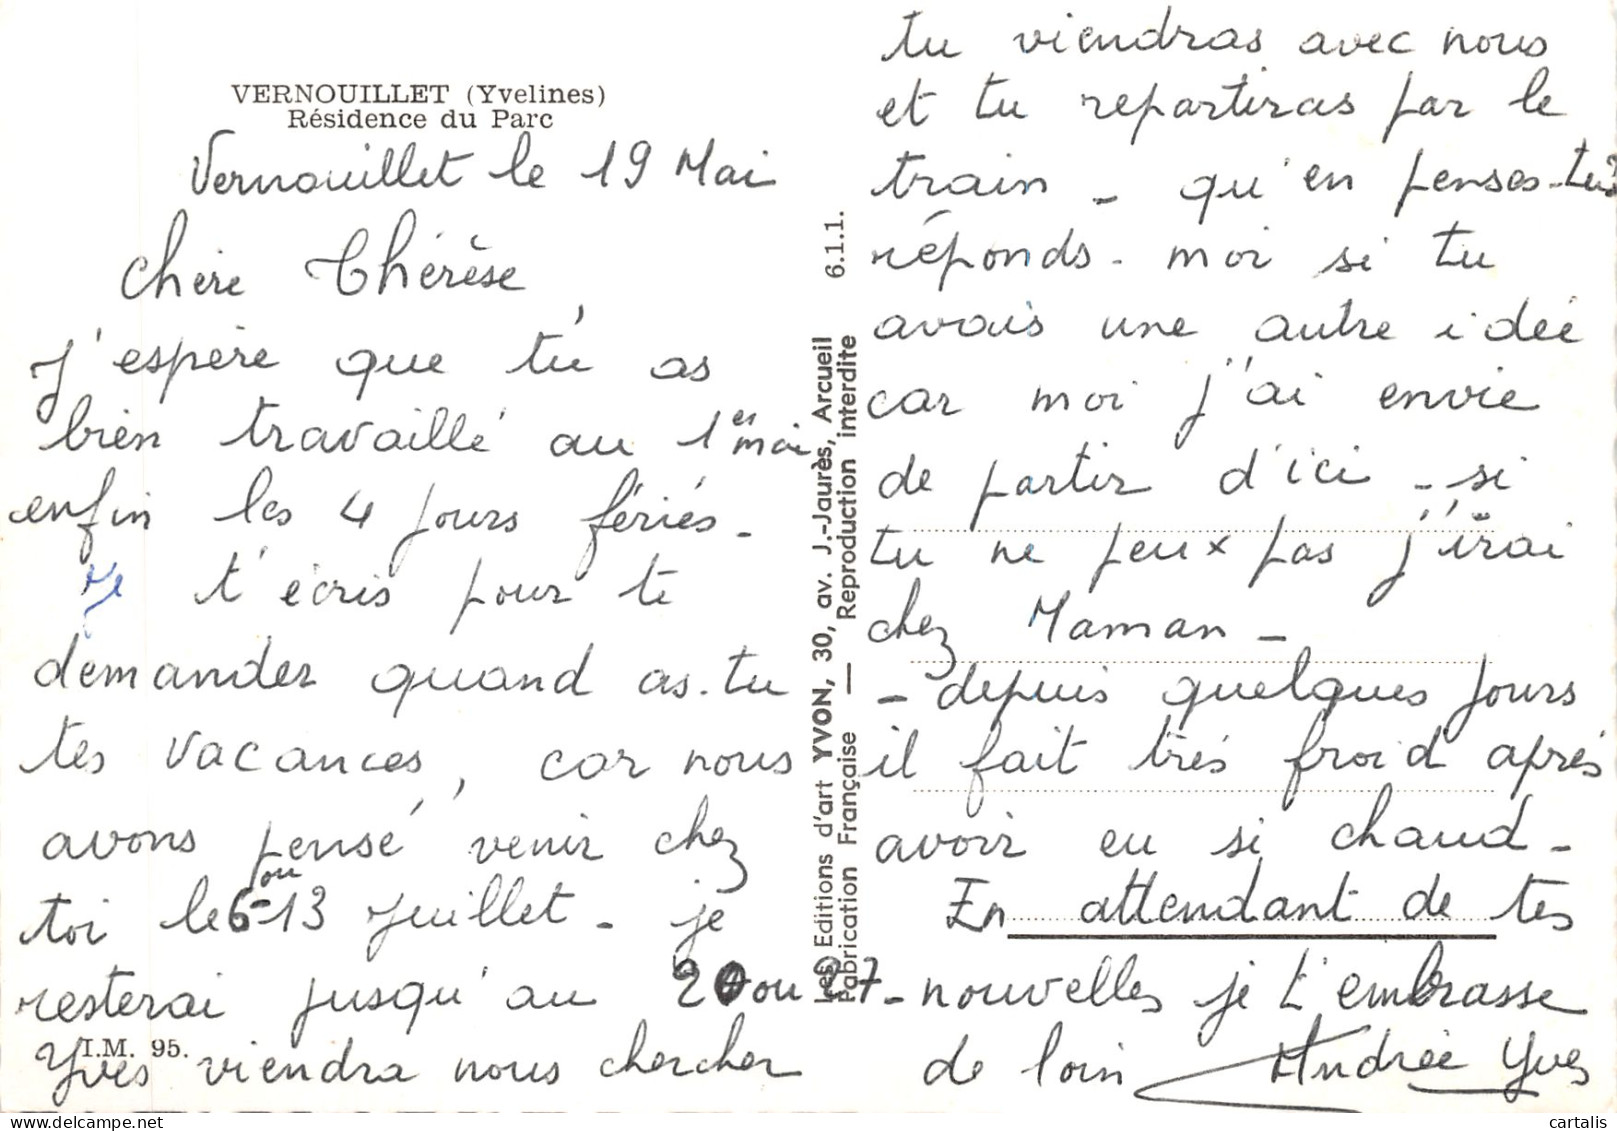 VERNOUILLET (Yvelines)
Résidence du Parc
Vernouillet le 19 Mai
Chère Thérèse,
J'espère que tu as
bien travaillé au 1er mai
enfin les 4 jours fériés -
Je t'écris pour te
demander quand as-tu
tes vacances, car nous
avons pensé venir chez
toi le 6 ou - 13 Juillet - je
resterai jusqu'au 20 ou 27 -
Yves viendra nous chercher
I.M. 95.
Les Editions d'art YVON, 30, av. J.-Jaurès, Arcueil 6.1.1.
Fabrication Française — Reproduction interdite
tu viendras avec nous
et tu repartiras par le
train - qu'en penses-tu?
réponds-moi si tu
avais une autre idée
car moi j'ai envie
de partir d'ici - si
tu ne peux pas j'irai
chez Maman -
- depuis quelques jours
il fait très froid après
avoir eu si chaud -
En attendant de tes
nouvelles je t'embrasse
de loin Andrée Yves
cartalis